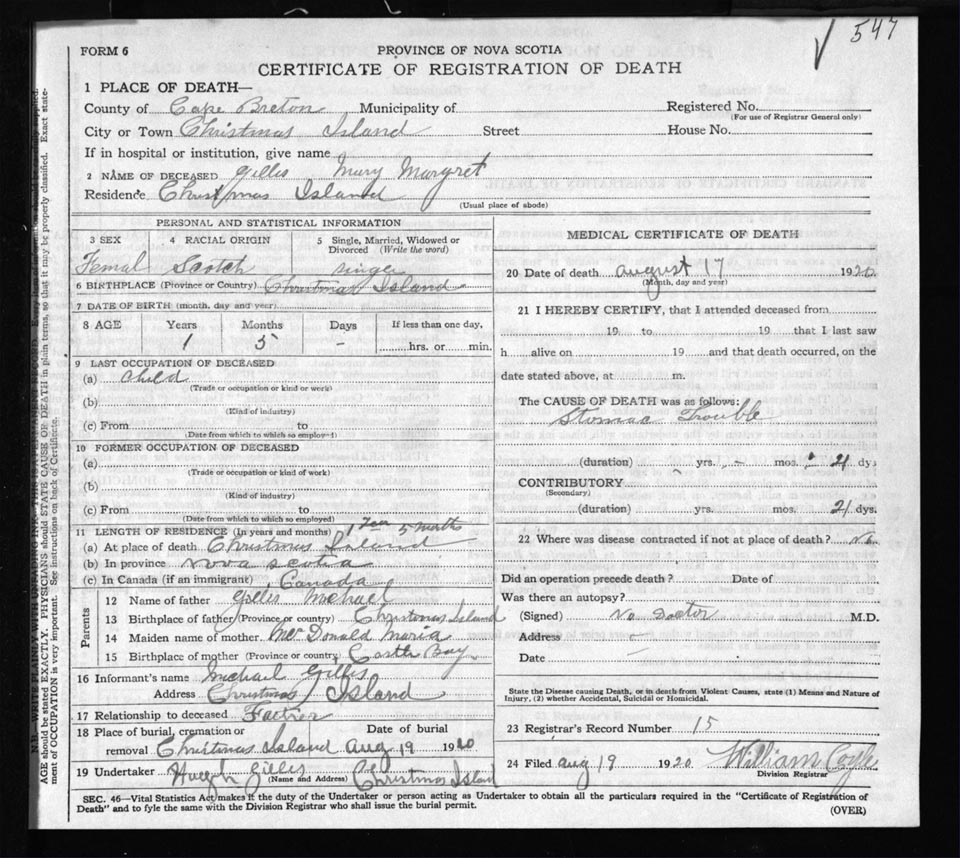 547
FORM 6
PROVINCE OF NOVA SCOTIA
CERTIFICATE OF REGISTRATION OF DEATH
1 PLACE OF DEATH—
County of Cape Breton Municipality of Registered No.
(For use of Registrar General only)
City or Town Christmas Island Street House No.
If in hospital or institution, give name
2 NAME OF DECEASED Gillis Mary Margret
Residence Christmas Island
(Usual place of abode)
PERSONAL AND STATISTICAL INFORMATION
3 SEX 4 RACIAL ORIGIN 5 Single, Married, Widowed or Divorced (Write the word)
Femal Scotch
6 BIRTHPLACE (Province or Country) Christmas Island
7 DATE OF BIRTH (month, day and year)
8 AGE Years Months Days If less than one day,
1 5 - hrs. or min.
9 LAST OCCUPATION OF DECEASED
(a) child
(Trade or occupation or kind or work)
(b)
(Kind of industry)
(c) From to
(Date from which to which so employed)
10 FORMER OCCUPATION OF DECEASED
(a)
(Trade or occupation or kind of work)
(b)
(Kind of industry)
(c) From to
(Date from which to which so employed)
11 LENGTH OF RESIDENCE (In years and months) 1 Year 5 months
(a) At place of death Christmas Island
(b) In province Nova Scotia
(c) In Canada (if an immigrant) Canada
Parents
12 Name of father Gillis Michael
13 Birthplace of father (Province or country) Christmas Island
14 Maiden name of mother McDonald Maria
15 Birthplace of mother (Province or country) Castle Bay
16 Informant's name Michael Gillis
Address Christmas Island
17 Relationship to deceased Father
18 Place of burial, cremation or Date of burial
removal Christmas Island Aug 19 1920
19 Undertaker Hugh Gillis Christmas Island
(Name and Address)
MEDICAL CERTIFICATE OF DEATH
20 Date of death august 17 1920
(Month, day and year)
21 I HEREBY CERTIFY, that I attended deceased from
19 to 19 that I last saw
h alive on 19 and that death occurred, on the
date stated above, at m.
The CAUSE OF DEATH was as follows:
Stomac Trouble
(duration) yrs. - mos. 21 dys
CONTRIBUTORY
(Secondary)
(duration) yrs. mos. 21 dys.
22 Where was disease contracted if not at place of death?
Did an operation precede death? Date of
Was there an autopsy?
(Signed) No Doctor M.D.
Address -
Date -
State the Disease causing Death, or in death from Violent Causes, state (1) Means and Nature of
Injury, (2) whether Accidental, Suicidal or Homicidal.
23 Registrar's Record Number 15
24 Filed aug 19 1920 William Coyle
Division Registrar
SEC. 46—Vital Statistics Act makes it the duty of the Undertaker or person acting as Undertaker to obtain all the particulars required in the "Certificate of Registration of
Death" and to fyle the same with the Division Registrar who shall issue the burial permit.
(OVER)
AGE should be stated EXACTLY. PHYSICIANS should STATE CAUSE OF DEATH in plain terms, so that it may be properly classified. Exact state-
ment of OCCUPATION is very important. See instructions on back of Certificate.